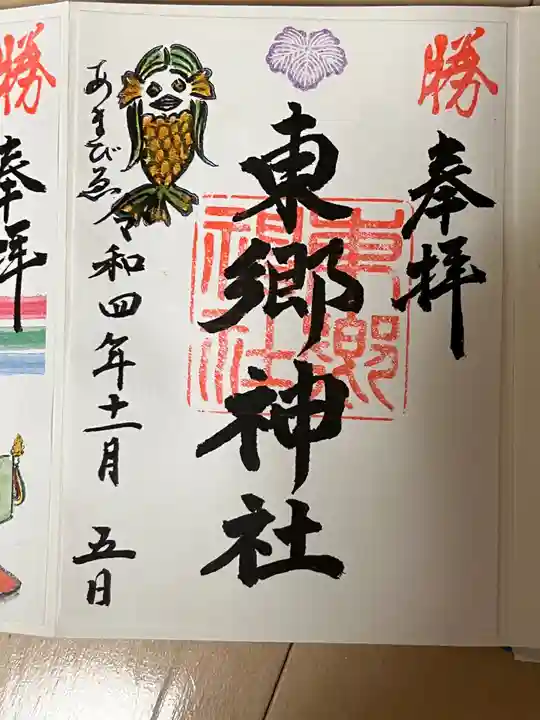 勝
奉拝
東郷神社
東郷神社
あまびゑ
令和四年十一月 五日
勝
奉拝